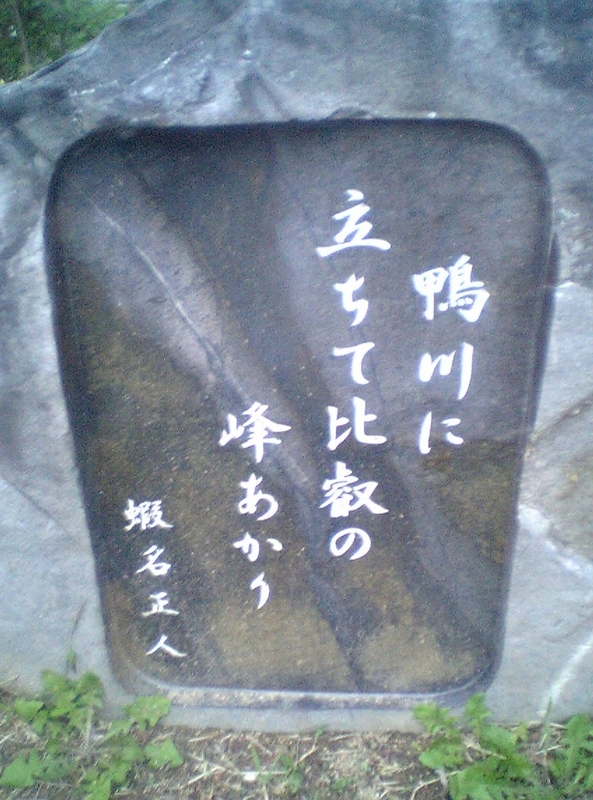 鴨川に
立ちて比叡の
峰あかり
蝦名正人